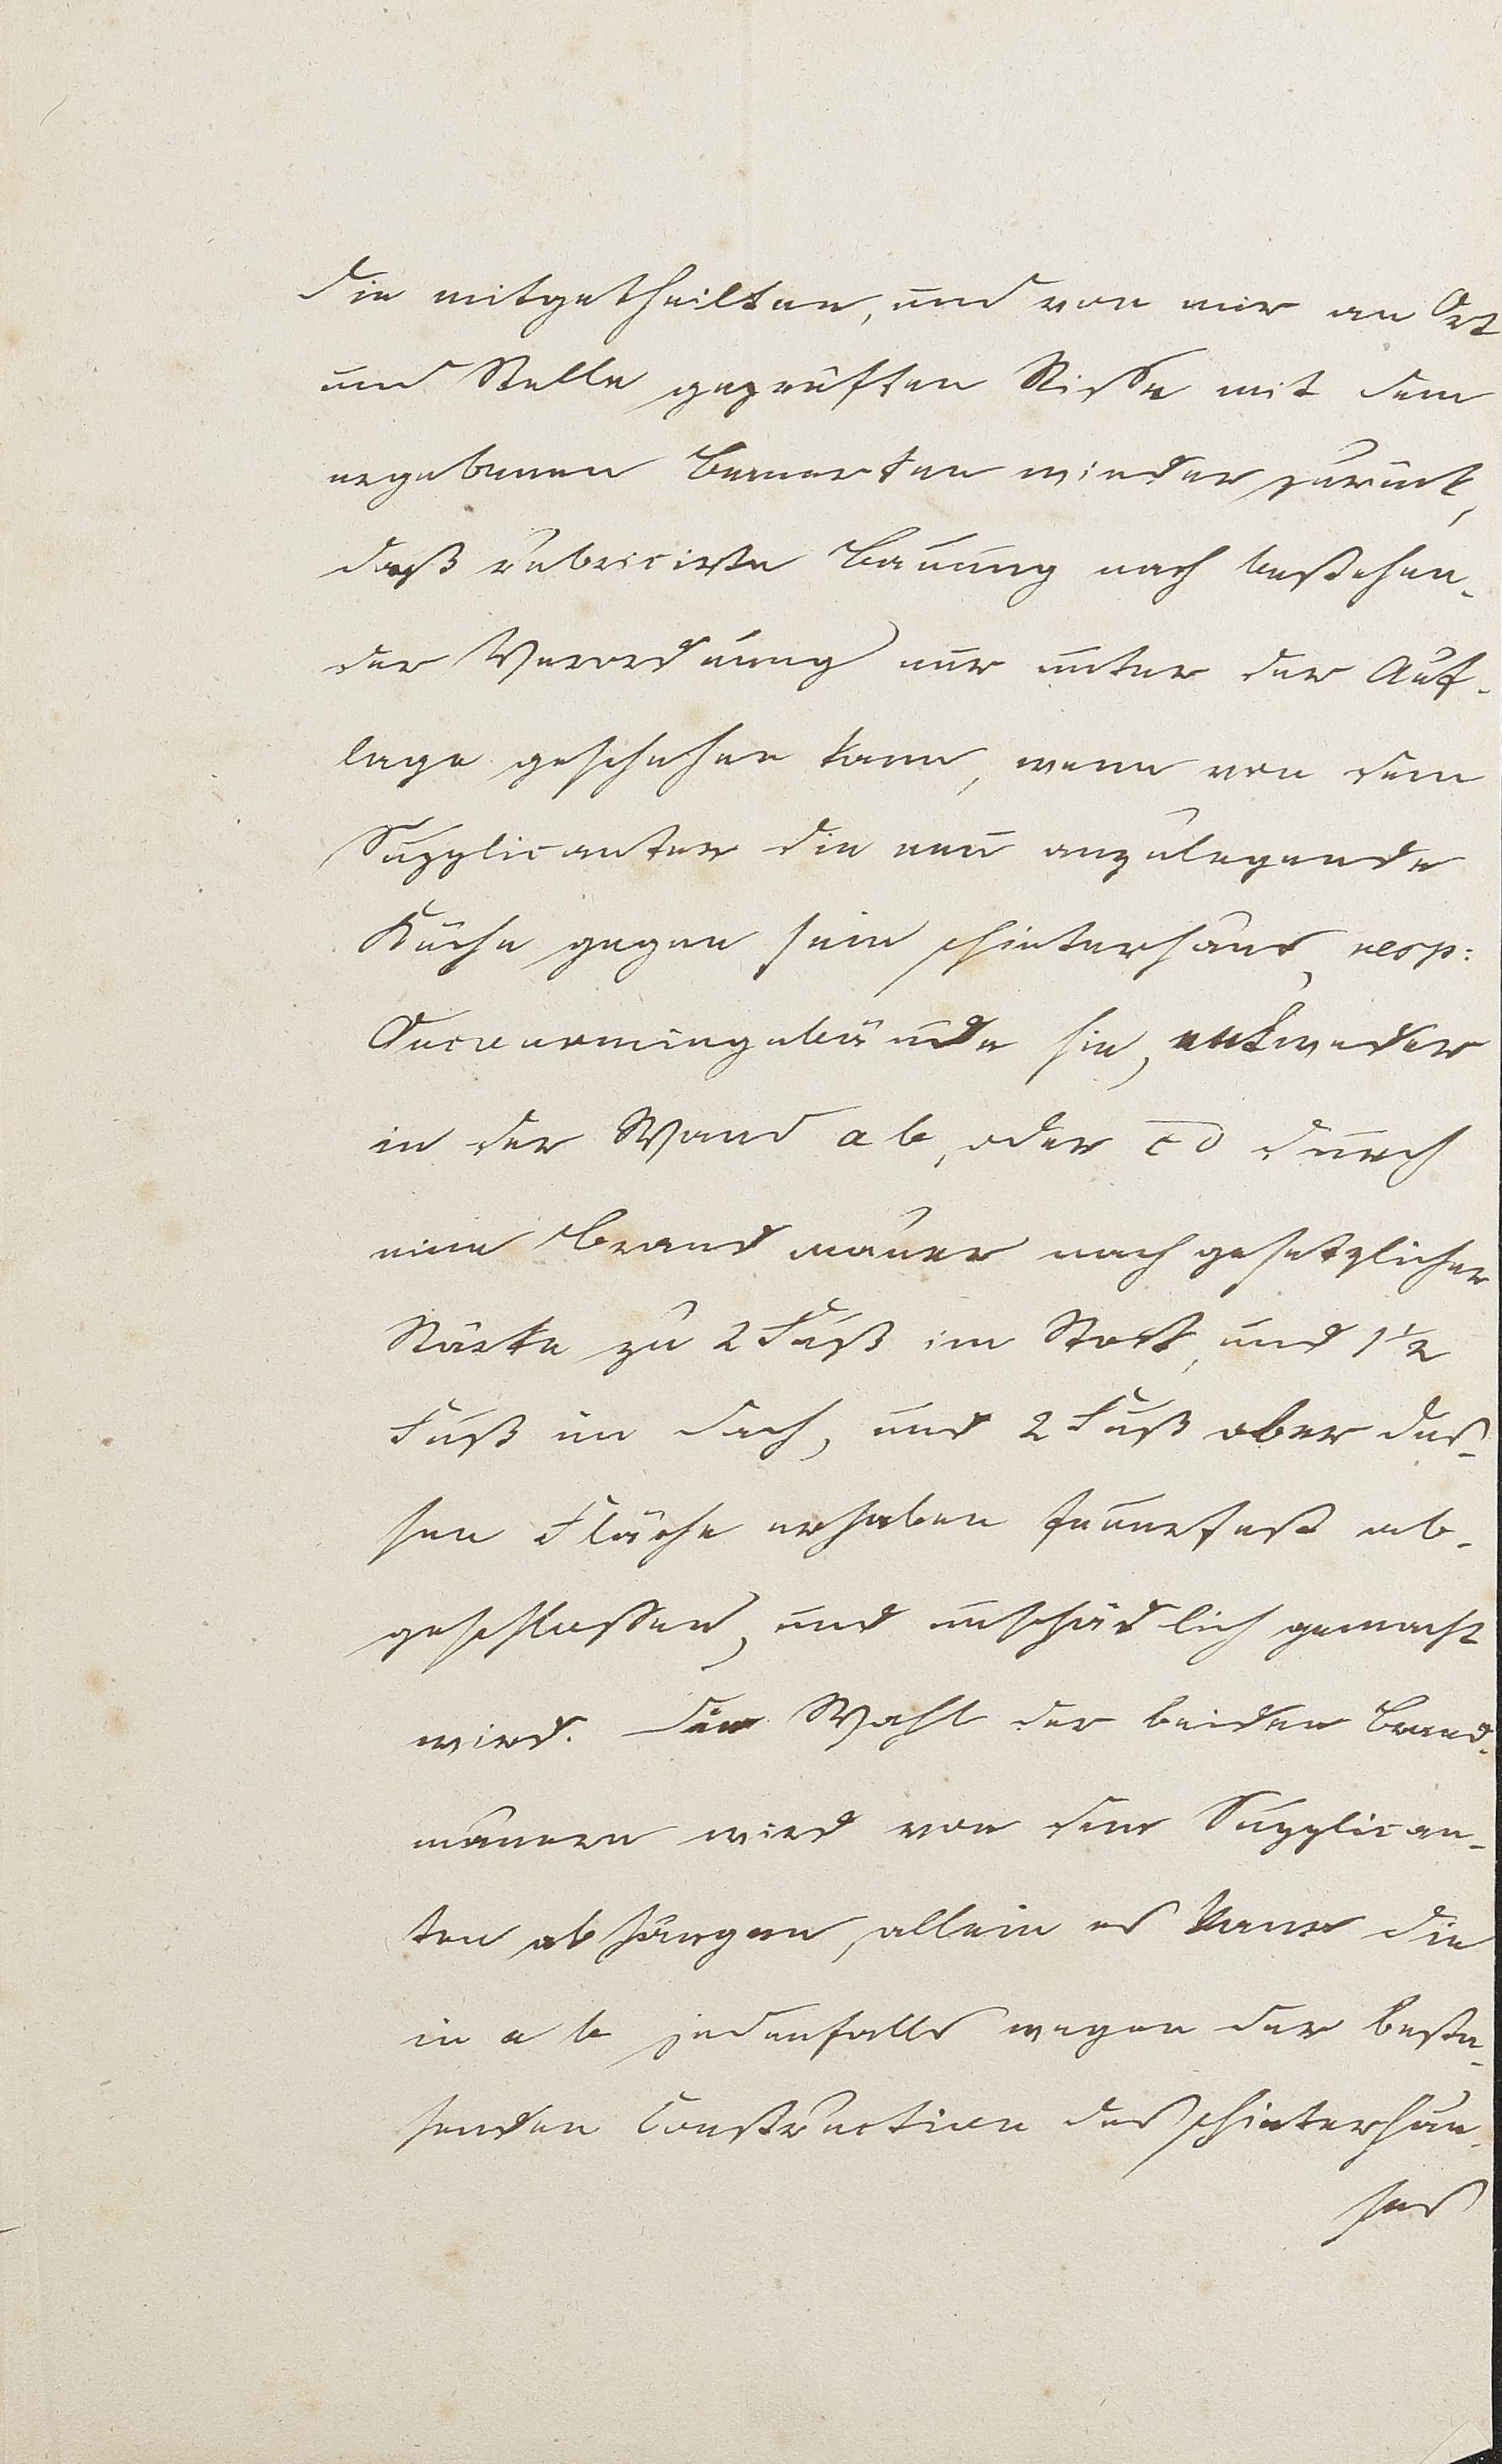 die mitgetheilten, und von mir an Ort
und Stelle geprüften Risse mit dem
ergebenen Bemerken wieder zurück,
daß rubricirte Bauung nach bestehen-
der Verordnung nur unter der Auf-
lage geschehen kann, wenn von dem
Supplicanten die neu anzulegende
Küche gegen sein Hinterhaus, resp:
Oeconomiegebäude hin, entweder
in der Wand a b, oder c d durch
eine Brandmauer nach gesetzlicher
Stärke zu 2 Fuß im Stock, und 1 1/2
Fuß im Dach, und 2 Fuß ober des-
sen Fläche erhaben feuerfest ab-
geschlossen, und unschädlich gemacht
wird. Die Wahl der beiden Brand-
mauern wird von dem Supplican-
ten abhängen, allein es kann die
in a b jedenfalls wegen der beste-
henden Construction des Hinterhau-
ses